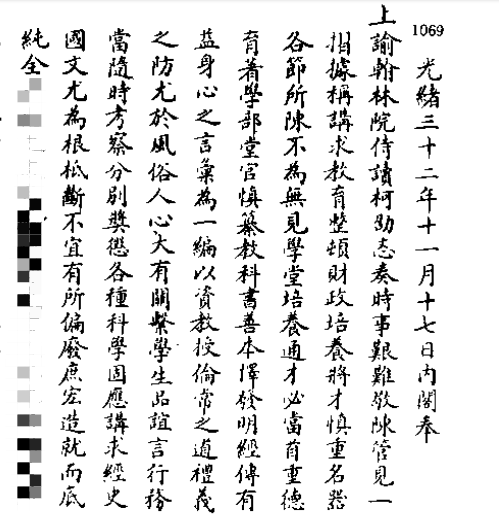 1069
光緒三十二年十一月十七日內閣奉
上諭翰林院侍讀柯劭忞奏時事艱難敬陳管見一
摺據稱講求教育整頓財政培養將才慎重名器
各節所陳不為無見學堂培養通才必當首重德
育著學部堂官慎纂教科書善本擇發明經傳有
益身心之言彙為一編以資教授倫常之道禮義
之防尤於風俗人心大有關繫學生品誼言行務
當隨時考察分別獎懲各種科學固應講求經史
國文尤為根柢斷不宜有所偏廢庶宏造就而底
純全